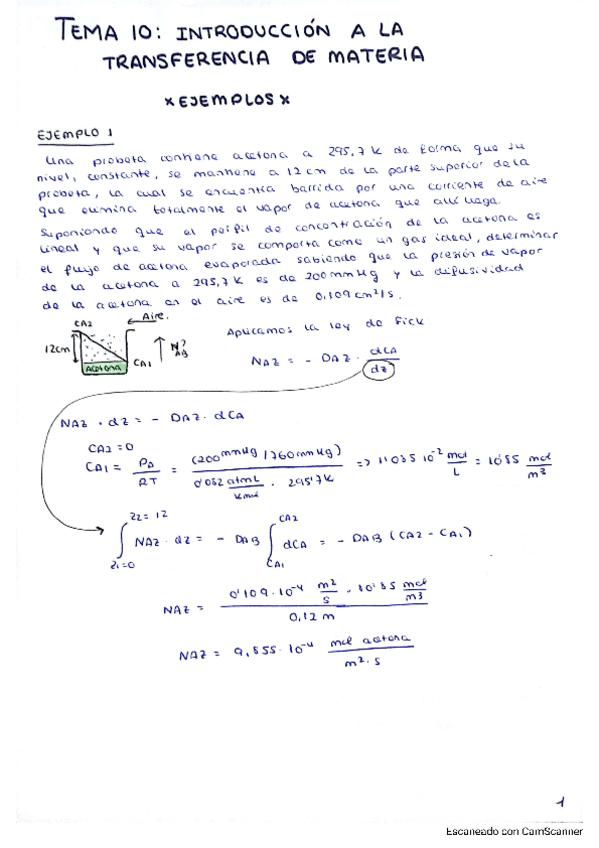 TEMA 10: INTRODUCCIÓN A LA
TRANSFERENCIA DE MATERIA
* EJEMPLOS *
EJEMPLO 1
Una probeta contiene acetona a 295,7 K de forma que su
nivel, constante, se mantiene a 12 cm de la parte superior de la
probeta, la cual se encuentra barrida por una corriente de aire
que elimina totalmente el vapor de acetona que allí llega.
Suponiendo que el perfil de concentración de la acetona es
lineal y que su vapor se comporta como un gas ideal, determinar
el flujo de acetona evaporada sabiendo que la presión de vapor
de la acetona a 295,7 K es de 200 mmHg y la difusividad
de la acetona en el aire es de 0,109 cm²/s.
CA2 ← Aire.
12cm Acetona CA1 ↑ N? AB
Aplicamos la ley de Fick
NAZ = - DAZ · dCA/dz
NAZ · dz = - DAZ · dCA
CA2 = 0
CA1 = PA/RT = (200 mmHg / 760 mmHg) / (0'082 atm L/K mol · 295'7K) => 1'085 10⁻² mol/L = 10'85 mol/m3
∫ z1=0 z2=12 NAZ · dz = - DAB ∫ CA1 CA2 dCA = - DAB (CA2 - CA1)
NAZ = (0'109·10⁻⁴ m2/s · 10'85 mol/m3) / 0,12 m
NAZ = 9,855·10⁻⁴ mol acetona / m2·s
1
Escaneado con CamScanner